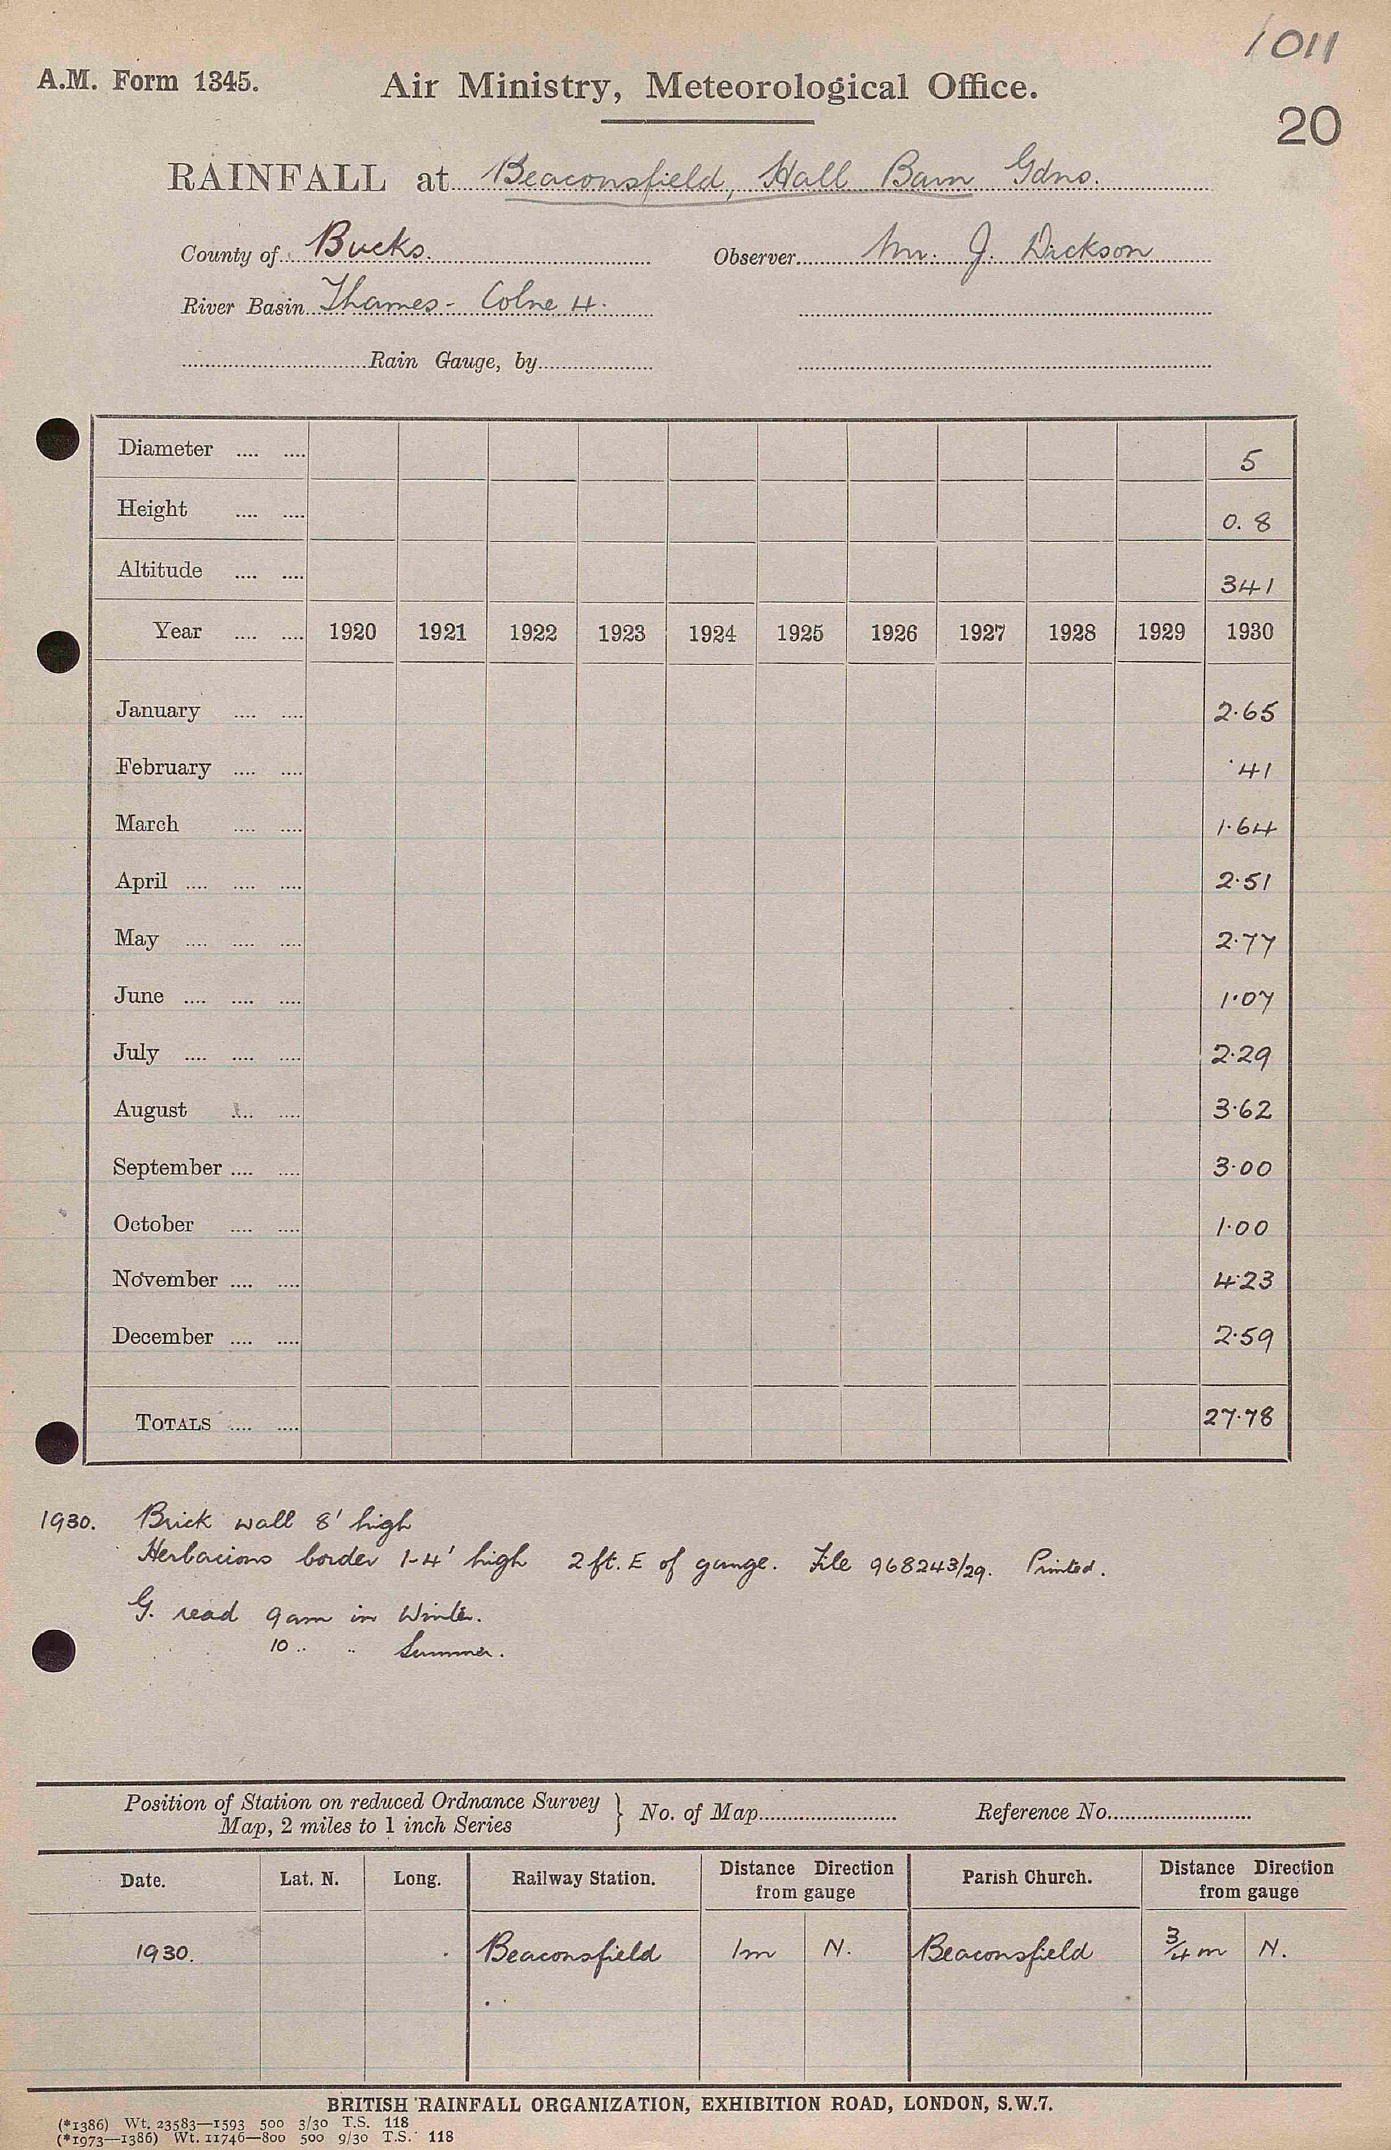 1011
A.M. Form 1345.
Air Ministry, Meteorological Office.
20
RAINFALL at Beaconsfield, Hall Barn Gdns.
County of Bucks. Observer Mr. J. Dickson
River Basin Thames - Colne 4.
Rain Gauge, by
Diameter 5
Height 0.8
Altitude 341
Year 1920 1921 1922 1923 1924 1925 1926 1927 1928 1929 1930
January 2.65
February .41
March 1.64
April 2.51
May 2.77
June 1.07
July 2.29
August 3.62
September 3.00
October 1.00
November 4.23
December 2.59
TOTALS 27.78
1930. Brick wall 8' high
Herbacious border 1-4' high 2 ft. E of gauge. File 968243/29. Printed.
G. read 9am in Winter.
10 .. .. Summer.
Position of Station on reduced Ordnance Survey Map, 2 miles to 1 inch Series } No. of Map Reference No.
Date. Lat. N. Long. Railway Station. Distance Direction from gauge Parish Church. Distance Direction from gauge
1930. Beaconsfield 1m N. Beaconsfield 3/4 m N.
BRITISH RAINFALL ORGANIZATION, EXHIBITION ROAD, LONDON, S.W.7.
(*1386) Wt. 23583—1593 500 3/30 T.S. 118
(*1973—1386) Wt. 11746—800 500 9/30 T.S. 118